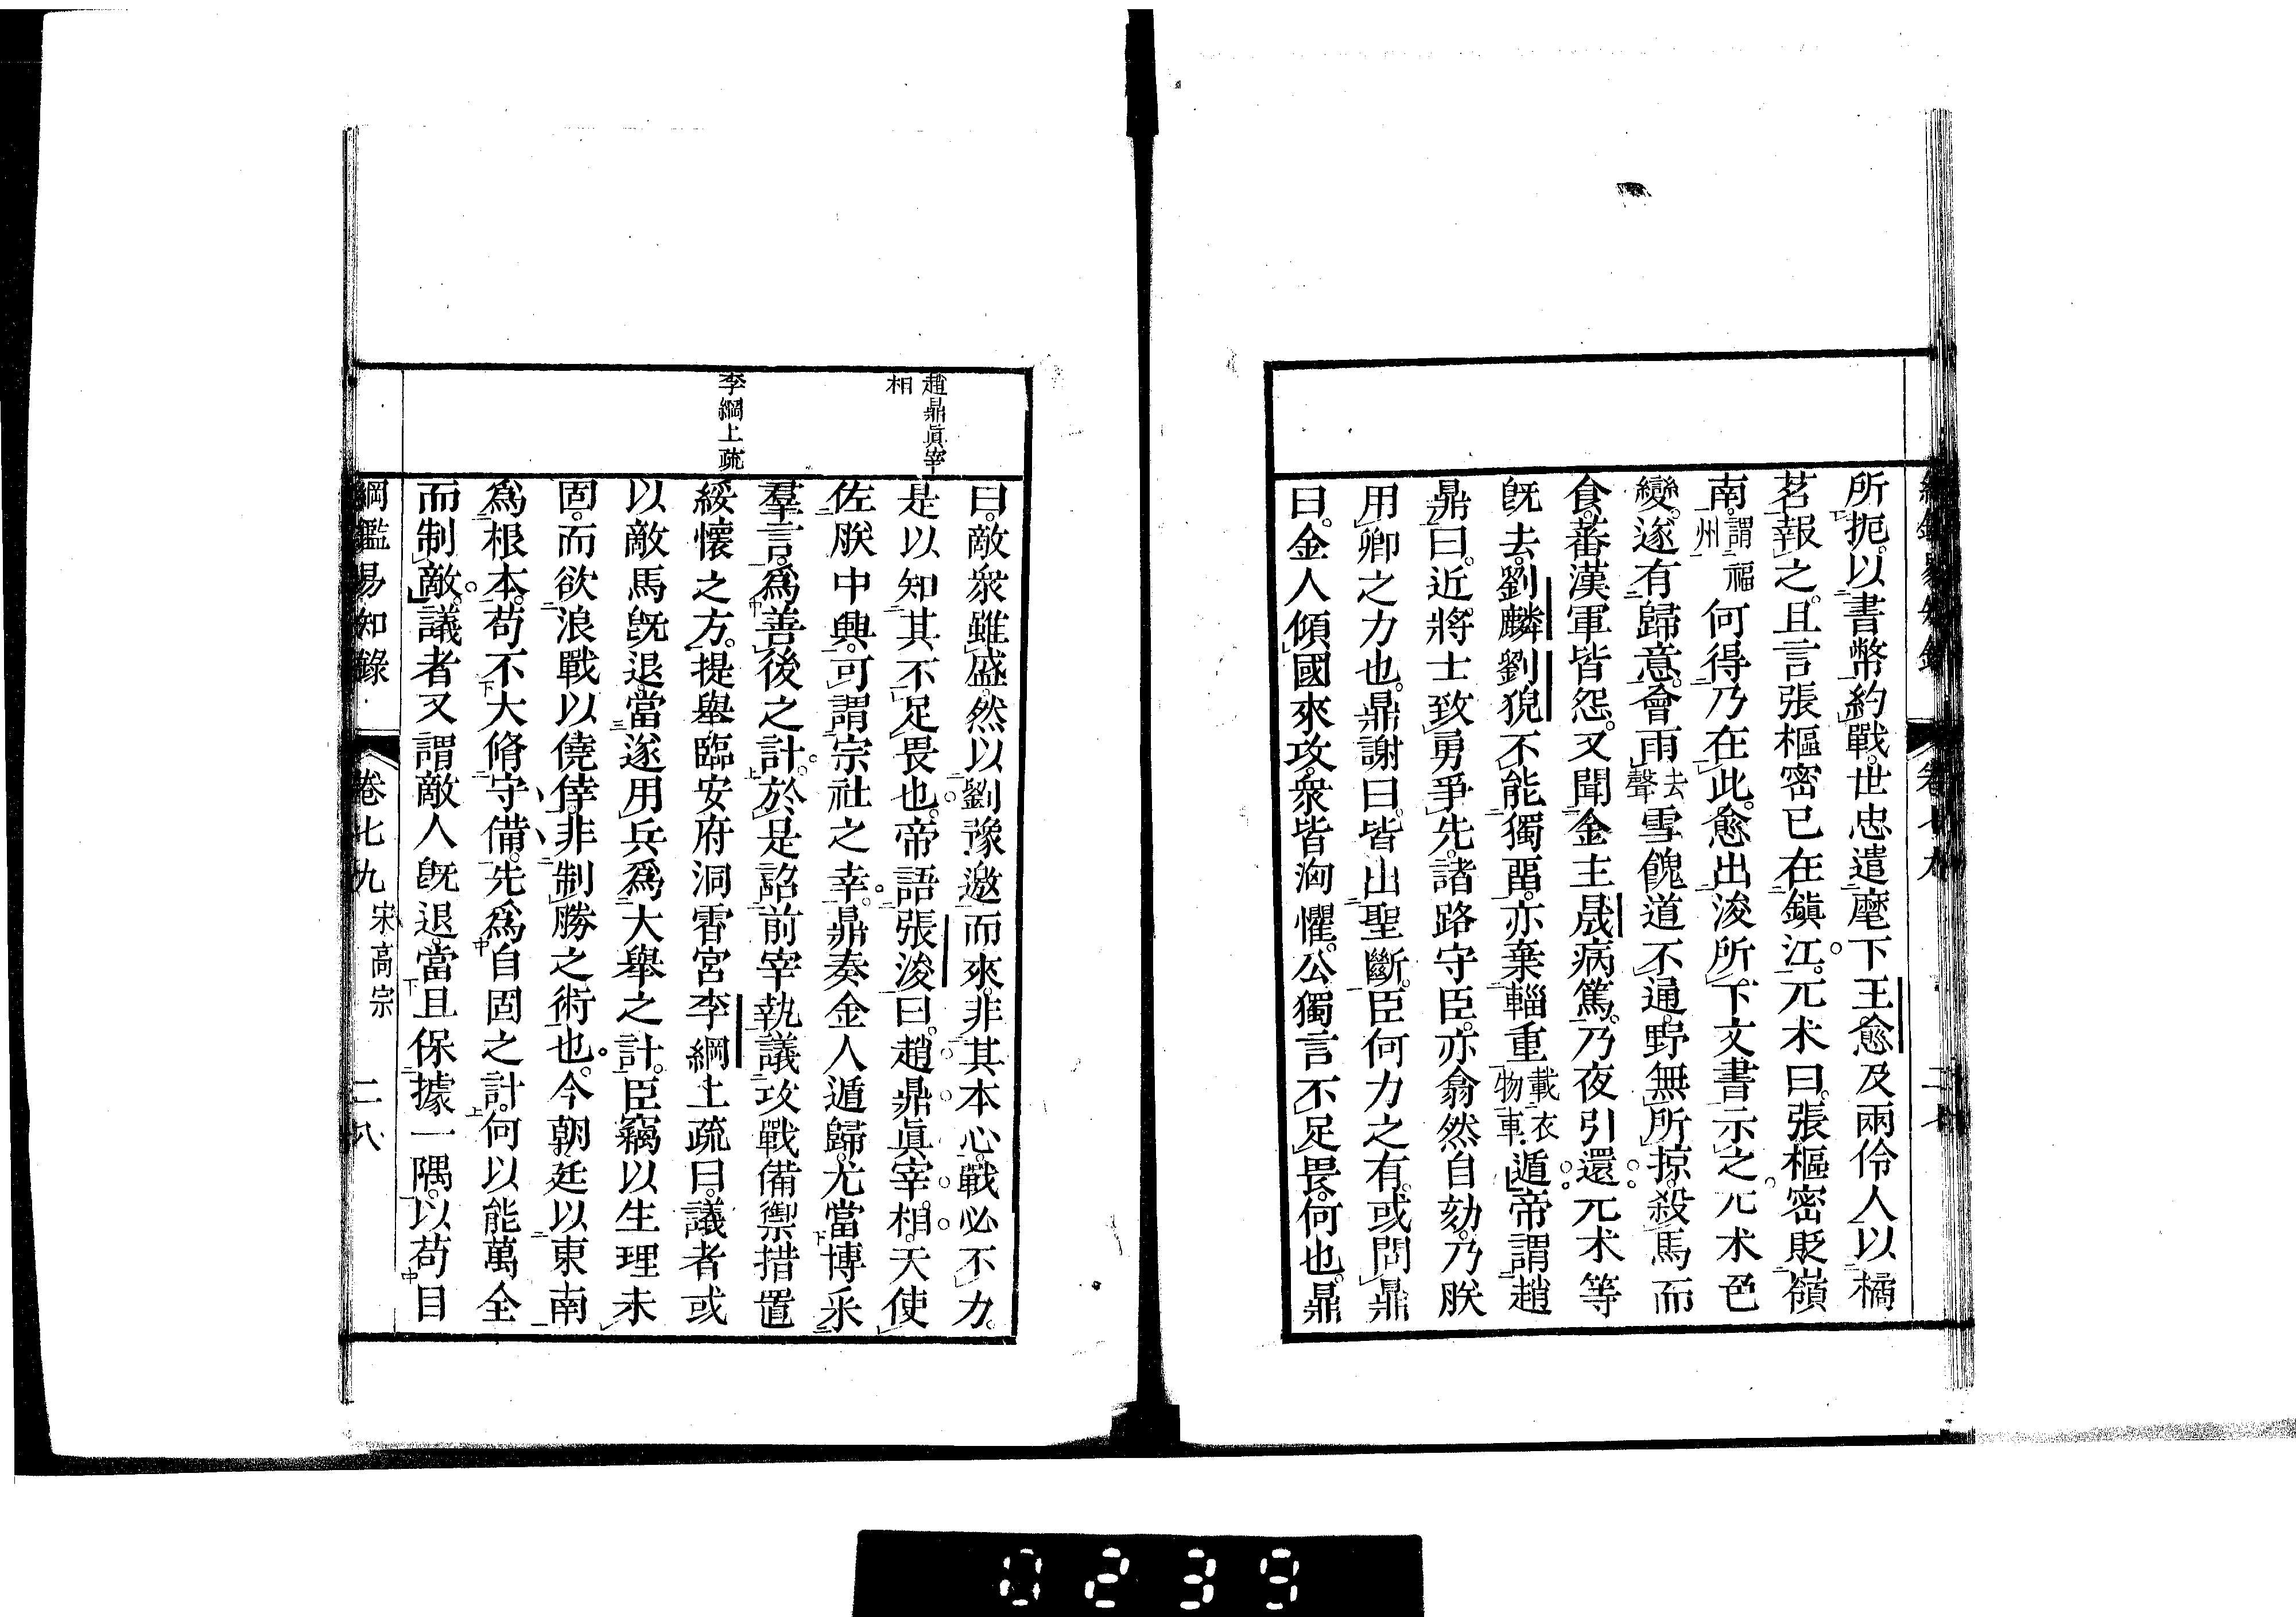 所扼。以書幣約戰。世忠遣麾下王愈及兩伶人以橘
茗報之。且言張樞密已在鎭江。兀朮曰。張樞密貶嶺
南。謂福州何得乃在此。愈出浚所下文書示之。兀朮色
變。遂有歸意。會雨去聲雪餽道不通。野無所掠。殺馬而
食。蕃漢軍皆怨。又聞金主晟病篤。乃夜引還。兀朮等
旣去。劉麟劉猊不能獨畱。亦棄輜重載衣物車遁。帝謂趙
鼎曰。近將士致勇爭先。諸路守臣。亦翕然自効。乃朕
用卿之力也。鼎謝曰。皆出聖斷。臣何力之有。或問鼎
曰。金人傾國來攻。衆皆洶懼。公獨言不足畏。何也。鼎
趙鼎眞宰
相
李綱上疏
曰。敵衆雖盛。然以劉豫邀而來。非其本心。戰必不力。
是以知其不足畏也。帝語張浚曰。趙鼎眞宰相。天使
佐朕中興。可謂宗社之幸。鼎奏金人遁歸。尤當博采
羣言。爲善後之計。於是詔前宰執議攻戰備禦措置
綏懷之方。提舉臨安府洞霄宮李綱上疏曰。議者或
以敵馬旣退。當遂用兵爲大舉之計。臣竊以生理未
固。而欲浪戰以僥倖。非制勝之術也。今朝廷以東南
爲根本。苟不大脩守備。先爲自固之計。何以能萬全
而制敵。議者又謂敵人旣退。當且保據一隅。以苟目
綱鑑易知錄 卷七九 宋高宗 二八
0239